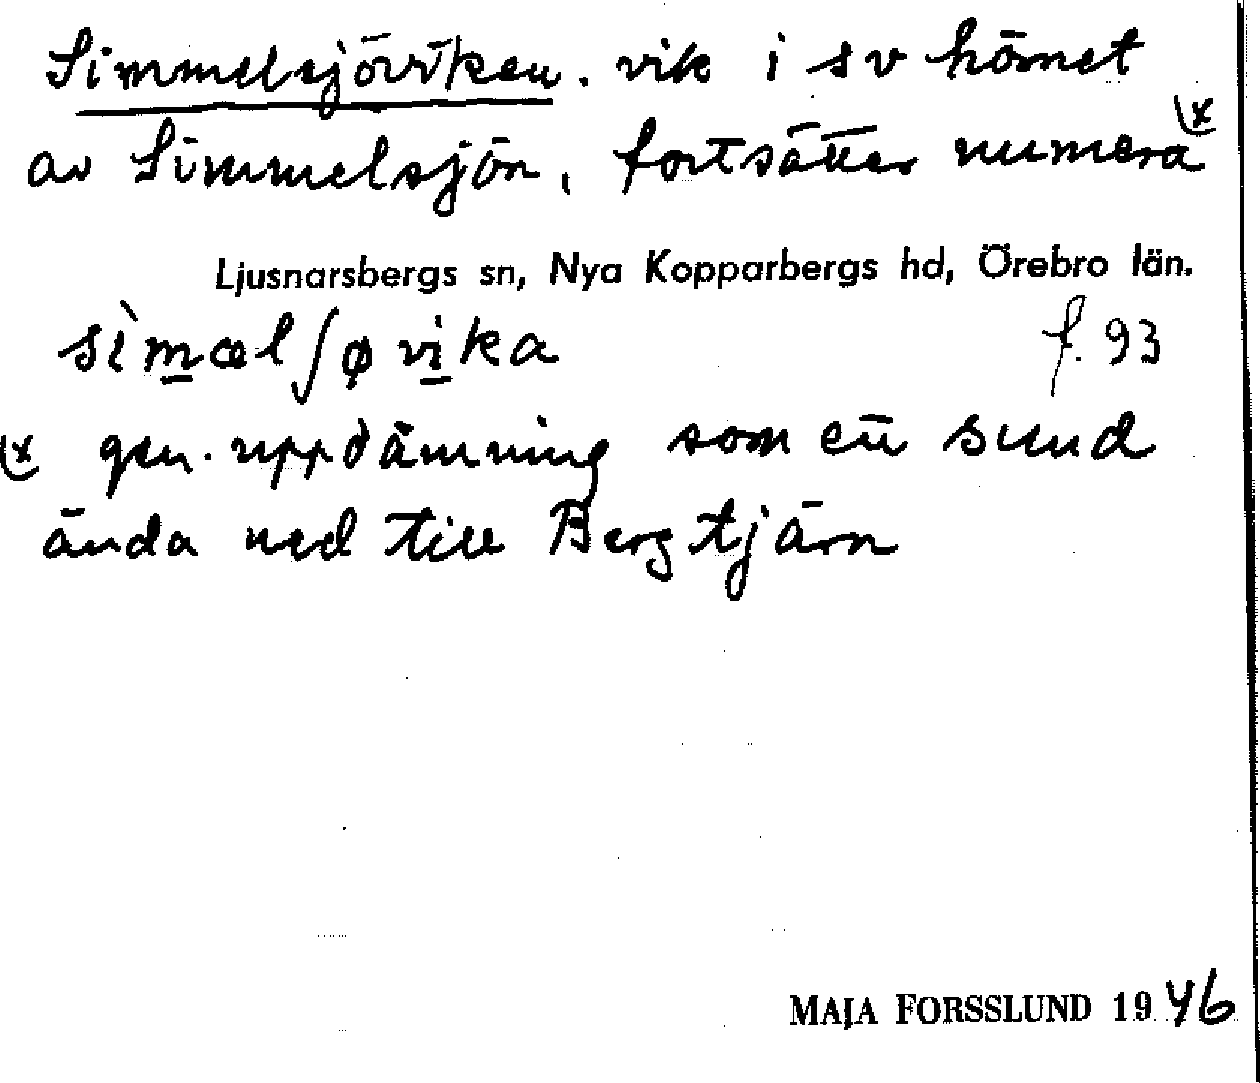 Simmelsjöviken. vik i sv hörnet
av Simmelsjön, fortsätter numera (x
Ljusnarsbergs sn, Nya Kopparbergs hd, Örebro län.
sìmæl∫ø vika f. 93
(x gen. uppdämning som ett sund
ända ned till Bergtjärn
MAJA FORSSLUND 1946